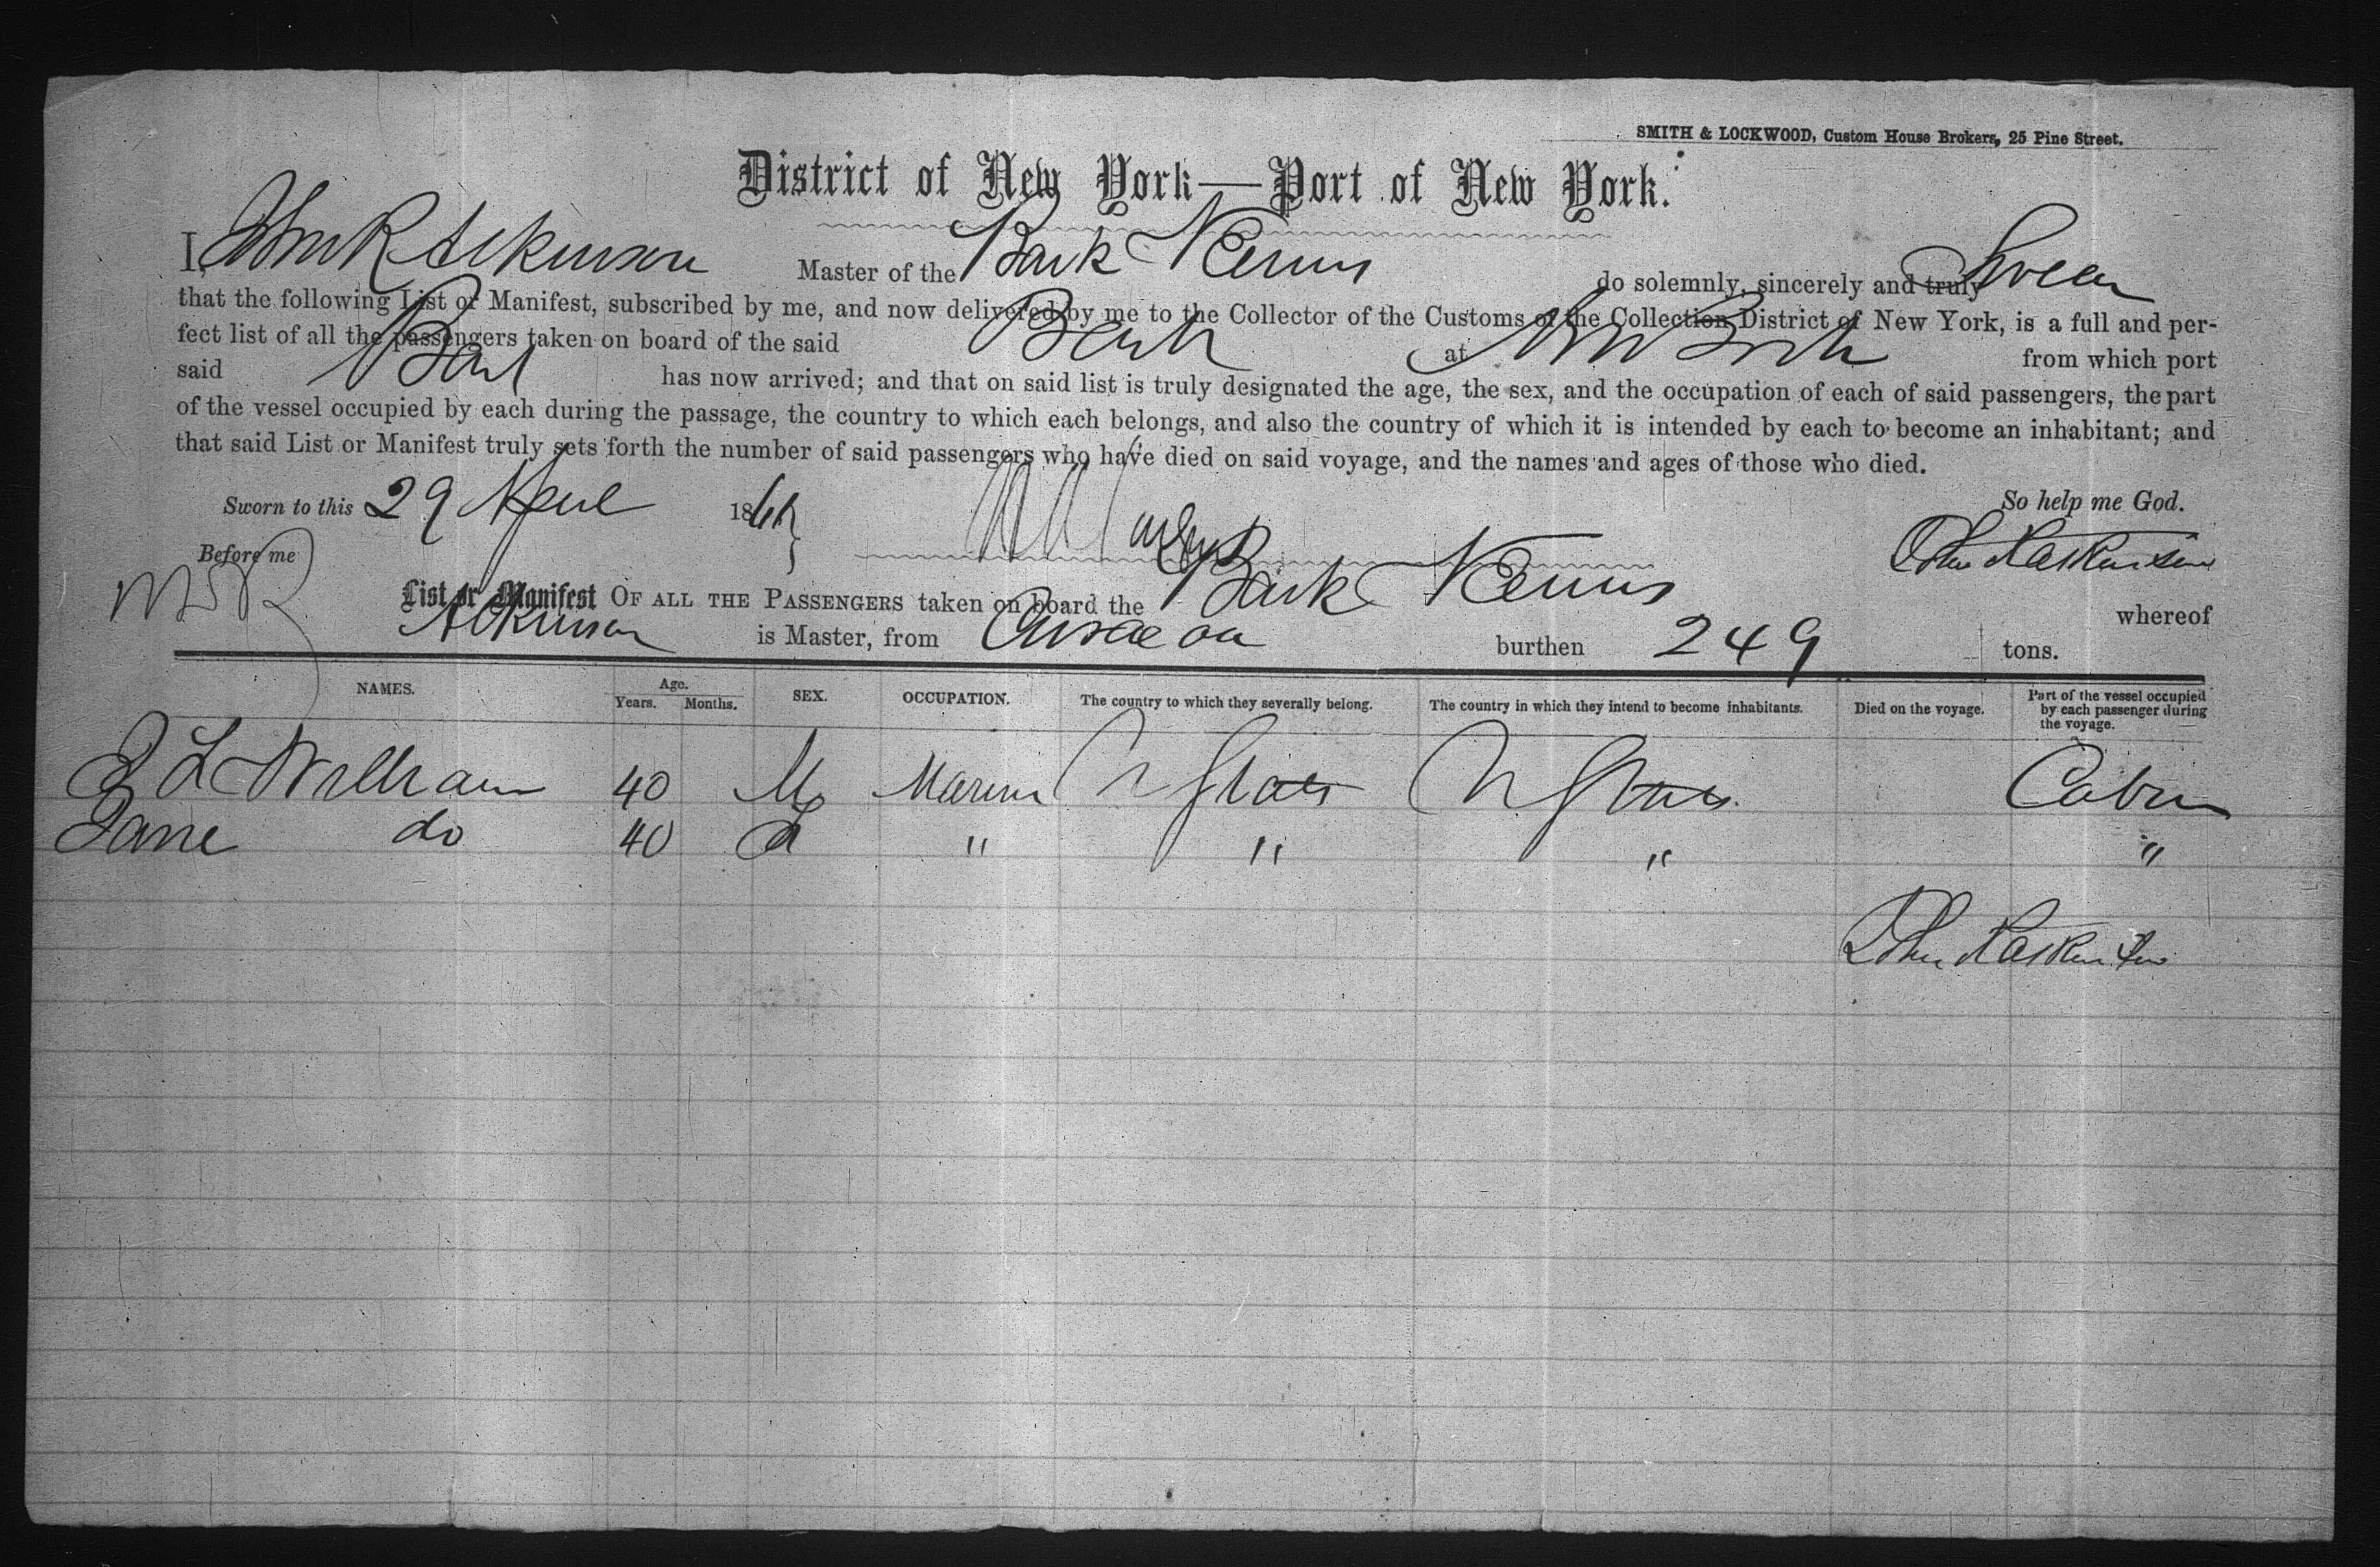 SMITH & LOCKWOOD, Custom House Brokers, 25 Pine Street.
District of New York—Port of New York.
I, John R Atkinson Master of the Bark Venus do solemnly, sincerely and truly Swear
that the following List or Manifest, subscribed by me, and now delivered by me to the Collector of the Customs of the Collection District of New York, is a full and per-
fect list of all the passengers taken on board of the said Bark at from which port
said Bark has now arrived; and that on said list is truly designated the age, the sex, and the occupation of each of said passengers, the part
of the vessel occupied by each during the passage, the country to which each belongs, and also the country of which it is intended by each to become an inhabitant; and
that said List or Manifest truly sets forth the number of said passengers who have died on said voyage, and the names and ages of those who died.
Sworn to this 29 April 186 So help me God.
Before me John R Atkinson
List or Manifest OF ALL THE PASSENGERS taken on board the Bark Venus whereof
Atkinson is Master, from Curacoa burthen 249 tons.
NAMES. Age. Years. Months. SEX. OCCUPATION. The country to which they severally belong. The country in which they intend to become inhabitants. Died on the voyage. Part of the vessel occupied by each passenger during the voyage.
J L William 40 M Marin U States U States Cabin
Jane do 40 F " " " "
John R Atkinson